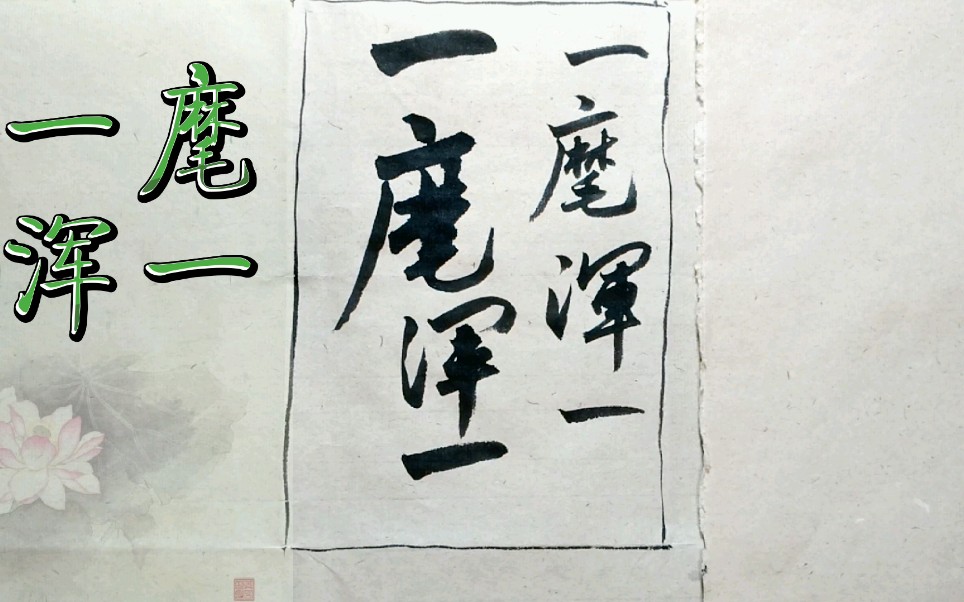 一麾
浑一
一麾渾一
一麾浑一